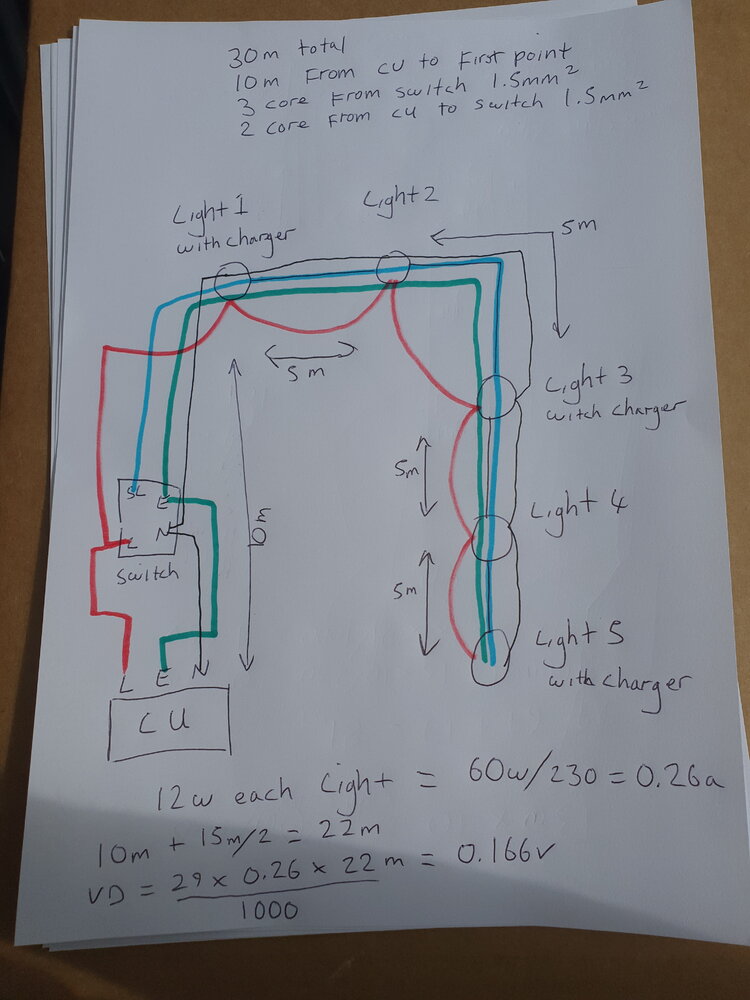 30m total
10m From CU to First point
3 core From switch 1.5mm²
2 core From CU to switch 1.5mm²
Light 1
with charger
Light 2
5m
5m
Light 3
witch charger
5m
Light 4
10m
SL E
L N
switch
5m
Light 5
with charger
L E N
CU
12w each Light = 60w/230 = 0.26a
10m + 15m/2 = 22m
VD = 29 x 0.26 x 22m = 0.166v
1000